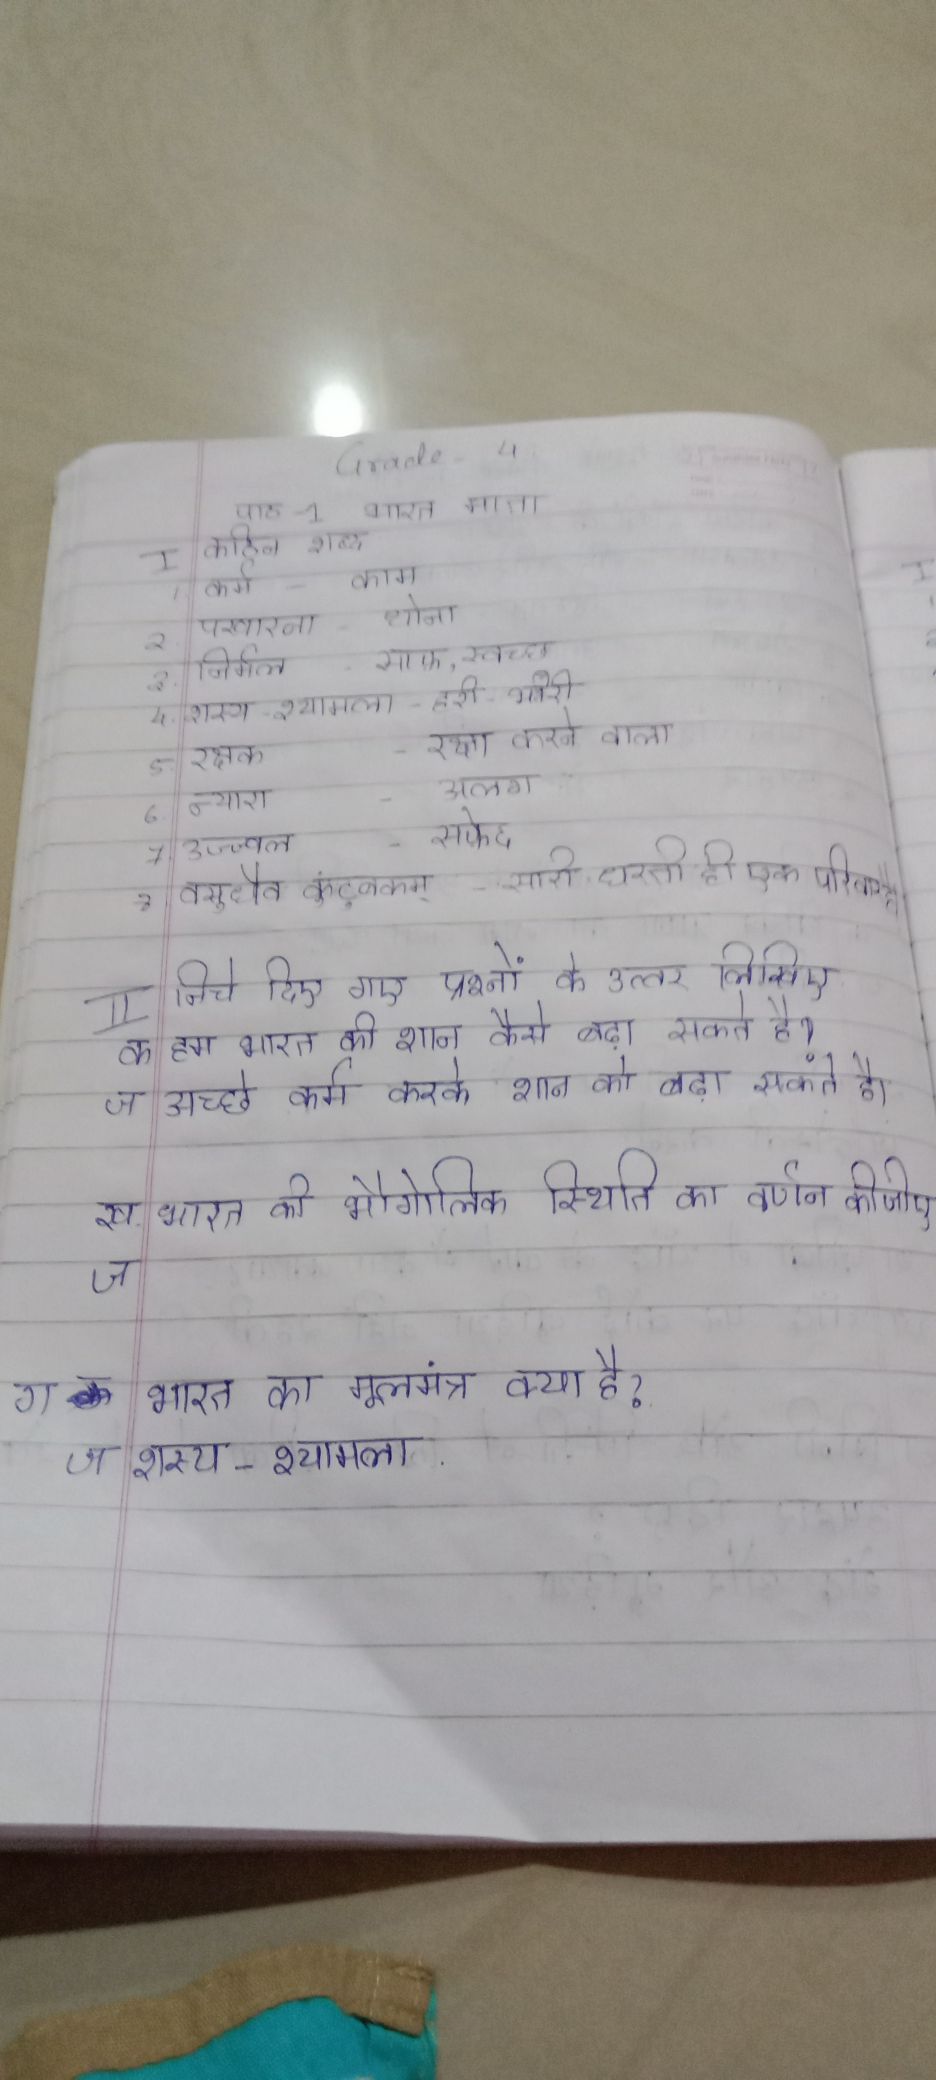 Grade - 4
पाठ -1 भारत माता
I कठिन शब्द
1. कर्म - काम
2. पखारना - धोना
3. निर्मल - साफ़, स्वच्छ
4. शस्य - श्यामला - हरी - भरी
5. रक्षक - रक्षा करने वाला
6. न्यारा - अलग
7. उज्ज्वल - सफेद
वसुधैव कुंटुबकम् - सारी धरती ही एक परिवार है।
II निचे दिए गए प्रश्नों के उत्तर लिखिए
क हम भारत की शान कैसे बढ़ा सकते है?
ज अच्छे कर्म करके शान को बढ़ा सकंते है।
ख. भारत की भौगोलिक स्थिति का वर्णन कीजीए
ज
ग भारत का मूलमंत्र क्या है?
ज शस्य - श्यामला.